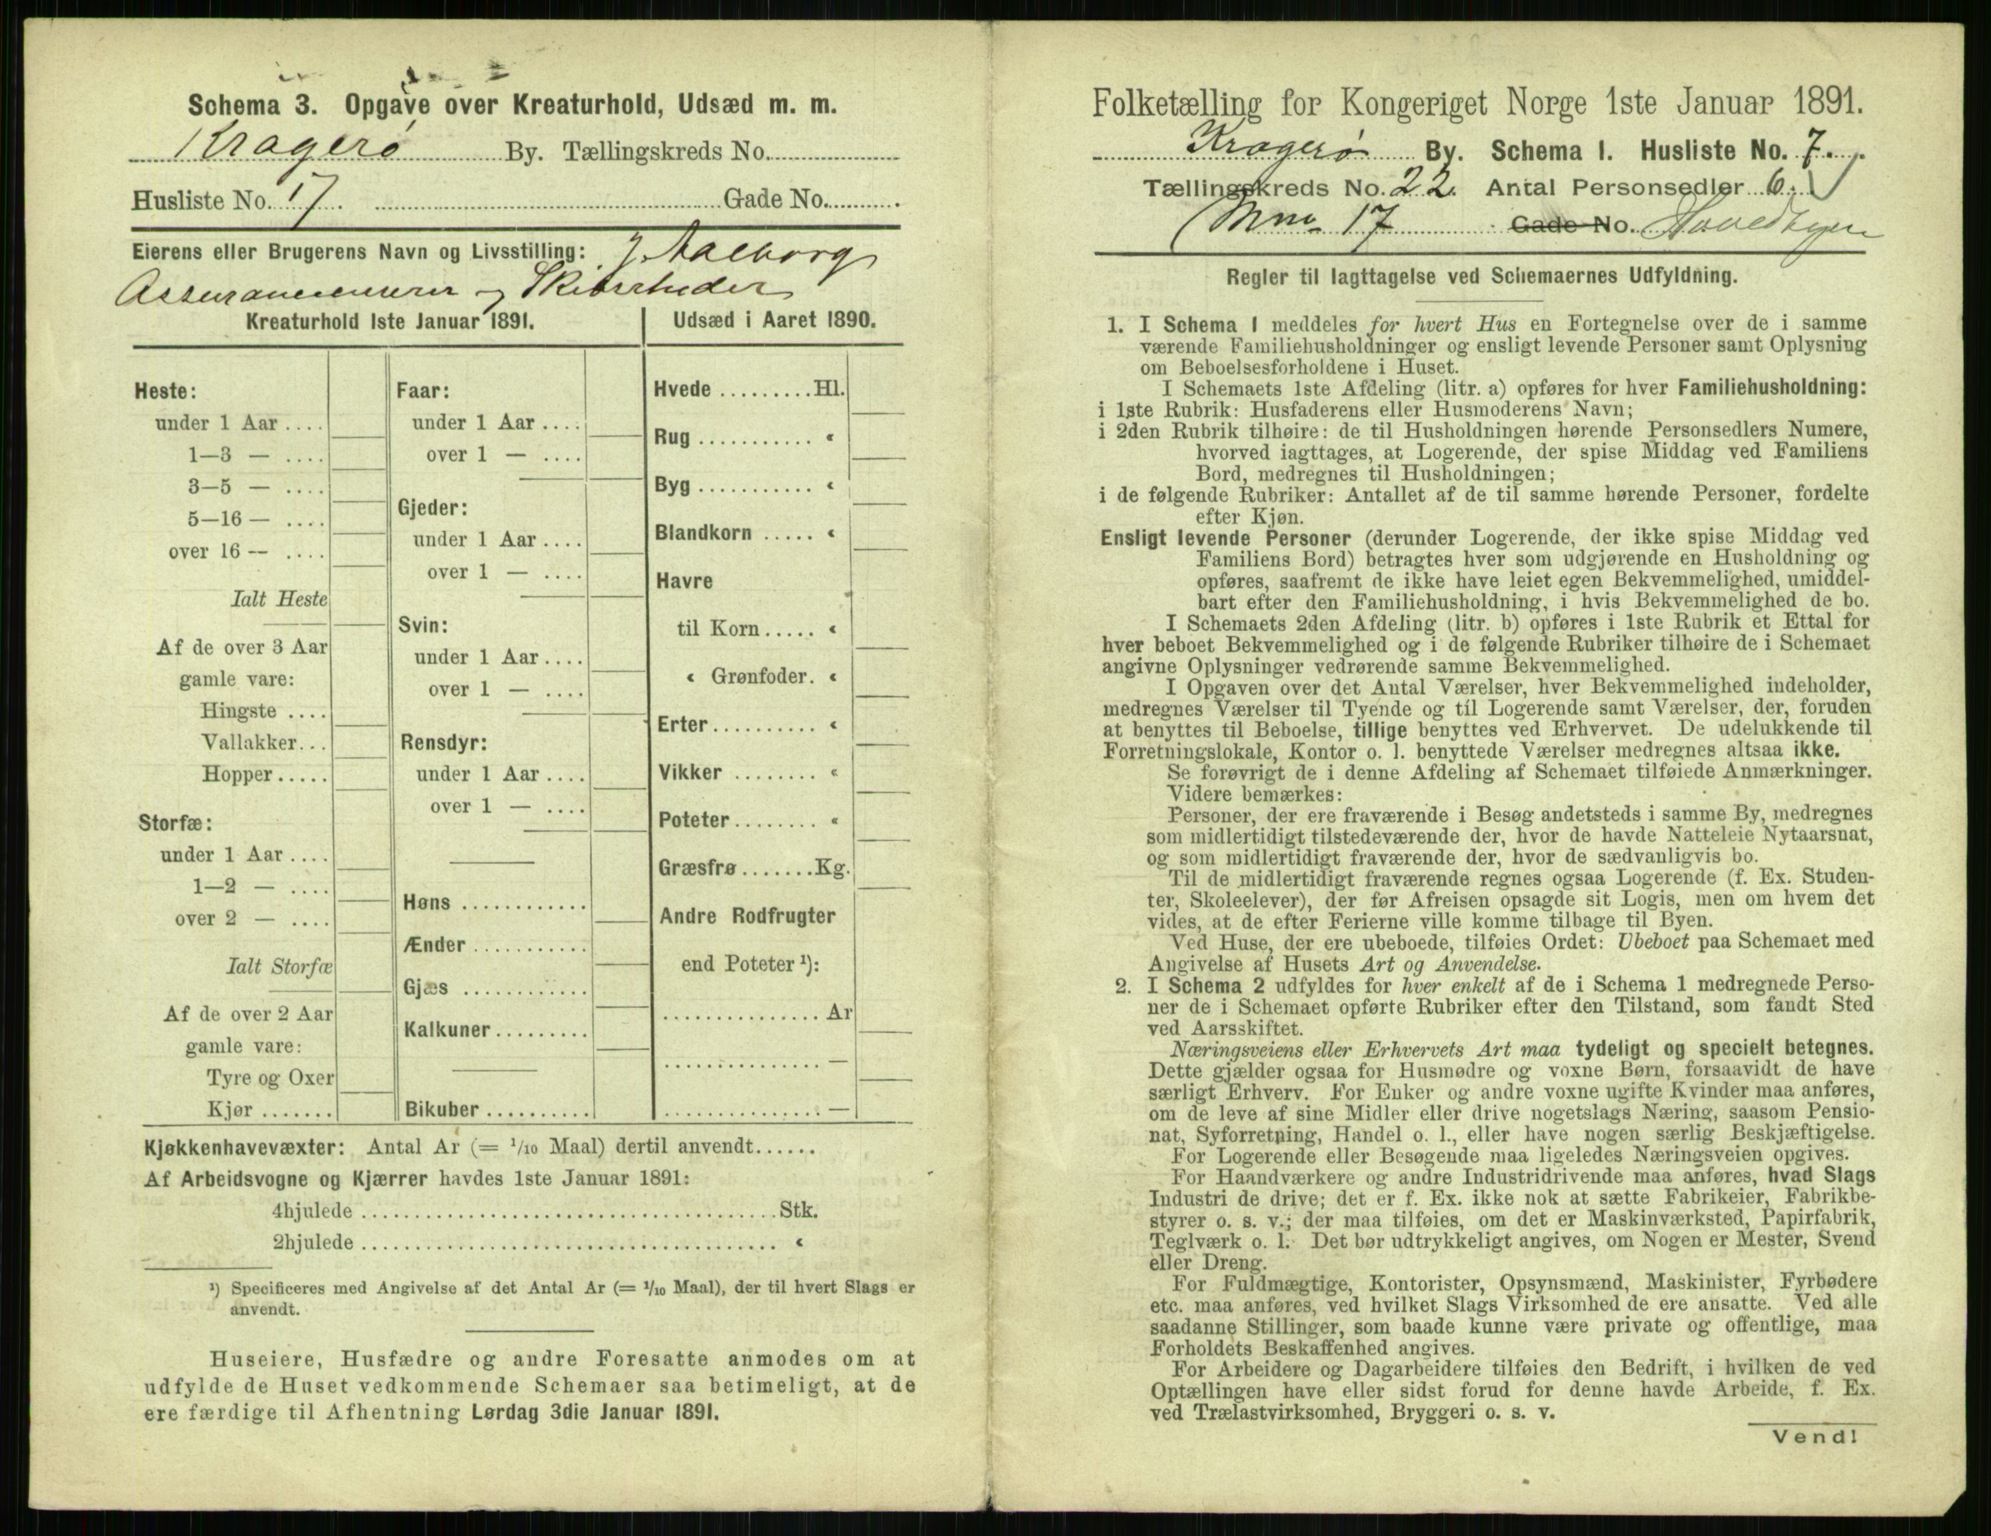 Schema 3. Opgave over Kreaturhold, Udsæd m. m.
Kragerø By. Tællingskreds No.
Husliste No. 17. Gade No.
Eierens eller Brugerens Navn og Livsstilling: J. Aalborg
og Skibsrheder
Kreaturhold 1ste Januar 1891.
Udsæd i Aaret 1890.
Heste:
under 1 Aar ....
1—3 — ....
3—5 — ....
5—16 — ....
over 16 — ....
Ialt Heste
Af de over 3 Aar
gamle vare:
Hingste ....
Vallakker...
Hopper.....
Storfæ:
under 1 Aar ....
1—2 — ....
over 2 — ....
Ialt Storfæ
Af de over 2 Aar
gamle vare:
Tyre og Oxer
Kjør .......
Faar:
under 1 Aar ....
over 1 — ....
Gjeder:
under 1 Aar ....
over 1 — ....
Svin:
under 1 Aar ....
over 1 — ....
Rensdyr:
under 1 Aar ....
over 1 — ....
Høns ............
Ænder ...........
Gjæs ............
Kalkuner.........
Bikuber ..........
Hvede .........Hl.
Rug ........... «
Byg ........... «
Blandkorn ..... «
Havre
til Korn..... «
« Grønfoder. «
Erter.......... «
Vikker ........ «
Poteter........ «
Græsfrø.......Kg.
Andre Rodfrugter
end Poteter ¹):
............... Ar
............... —
............... —
Kjøkkenhavevæxter: Antal Ar (= 1/10 Maal) dertil anvendt......
Af Arbeidsvogne og Kjærrer havdes 1ste Januar 1891:
4hjulede ....................................Stk.
2hjulede .................................... «
¹) Specificeres med Angivelse af det Antal Ar (= 1/10 Maal), der til hvert Slags er
anvendt.
Huseiere, Husfædre og andre Foresatte anmodes om at
udfylde de Huset vedkommende Schemaer saa betimeligt, at de
ere færdige til Afhentning Lørdag 3die Januar 1891.
Folketælling for Kongeriget Norge 1ste Januar 1891.
Kragerø By. Schema 1. Husliste No. 7.
Tællingskreds No. 22. Antal Personsedler 6.
17 Gade No. Hovedbyen
Regler til Iagttagelse ved Schemaernes Udfyldning.
1. I Schema 1 meddeles for hvert Hus en Fortegnelse over de i samme
værende Familiehusholdninger og ensligt levende Personer samt Oplysning
om Beboelsesforholdene i Huset.
I Schemaets 1ste Afdeling (litr. a) opføres for hver Familiehusholdning:
i 1ste Rubrik: Husfaderens eller Husmoderens Navn;
i 2den Rubrik tilhøire: de til Husholdningen hørende Personsedlers Numere,
hvorved iagttages, at Logerende, der spise Middag ved Familiens
Bord, medregnes til Husholdningen;
i de følgende Rubriker: Antallet af de til samme hørende Personer, fordelte
efter Kjøn.
Ensligt levende Personer (derunder Logerende, der ikke spise Middag ved
Familiens Bord) betragtes hver som udgjørende en Husholdning og
opføres, saafremt de ikke have leiet egen Bekvemmelighed, umiddel-
bart efter den Familiehusholdning, i hvis Bekvemmelighed de bo.
I Schemaets 2den Afdeling (litr. b) opføres i 1ste Rubrik et Ettal for
hver beboet Bekvemmelighed og i de følgende Rubriker tilhøire de i Schemaet
angivne Oplysninger vedrørende samme Bekvemmelighed.
I Opgaven over det Antal Værelser, hver Bekvemmelighed indeholder,
medregnes Værelser til Tyende og til Logerende samt Værelser, der, foruden
at benyttes til Beboelse, tillige benyttes ved Erhvervet. De udelukkende til
Forretningslokale, Kontor o. l. benyttede Værelser medregnes altsaa ikke.
Se forøvrigt de i denne Afdeling af Schemaet tilføiede Anmærkninger.
Videre bemærkes:
Personer, der ere fraværende i Besøg andetsteds i samme By, medregnes
som midlertidigt tilstedeværende der, hvor de havde Natteleie Nytaarsnat,
og som midlertidigt fraværende der, hvor de sædvanligvis bo.
Til de midlertidigt fraværende regnes ogsaa Logerende (f. Ex. Studen-
ter, Skoleelever), der før Afreisen opsagde sit Logis, men om hvem det
vides, at de efter Ferierne ville komme tilbage til Byen.
Ved Huse, der ere ubeboede, tilføies Ordet: Ubeboet paa Schemaet med
Angivelse af Husets Art og Anvendelse.
2. I Schema 2 udfyldes for hver enkelt af de i Schema 1 medregnede Perso-
ner de i Schemaet opførte Rubriker efter den Tilstand, som fandt Sted
ved Aarsskiftet.
Næringsveiens eller Erhvervets Art maa tydeligt og specielt betegnes.
Dette gjælder ogsaa for Husmødre og voxne Børn, forsaavidt de have
særligt Erhverv. For Enker og andre voxne ugifte Kvinder maa anføres,
om de leve af sine Midler eller drive nogetslags Næring, saasom Pensio-
nat, Syforretning, Handel o. l., eller have nogen særlig Beskjæftigelse.
For Logerende eller Besøgende maa ligeledes Næringsveien opgives.
For Haandværkere og andre Industridrivende maa anføres, hvad Slags
Industri de drive; det er f. Ex. ikke nok at sætte Fabrikeier, Fabrikbe-
styrer o. s. v.; der maa tilføies, om det er Maskinværksted, Papirfabrik,
Teglværk o. l. Det bør udtrykkeligt angives, om Nogen er Mester, Svend
eller Dreng.
For Fuldmægtige, Kontorister, Opsynsmænd, Maskinister, Fyrbødere
etc. maa anføres, ved hvilket Slags Virksomhed de ere ansatte. Ved alle
saadanne Stillinger, som baade kunne være private og offentlige, maa
Forholdets Beskaffenhed angives.
For Arbeidere og Dagarbeidere tilføies den Bedrift, i hvilken de ved
Optællingen have eller sidst forud for denne havde Arbeide, f. Ex.
ved Trælastvirksomhed, Bryggeri o. s. v.
Vend!